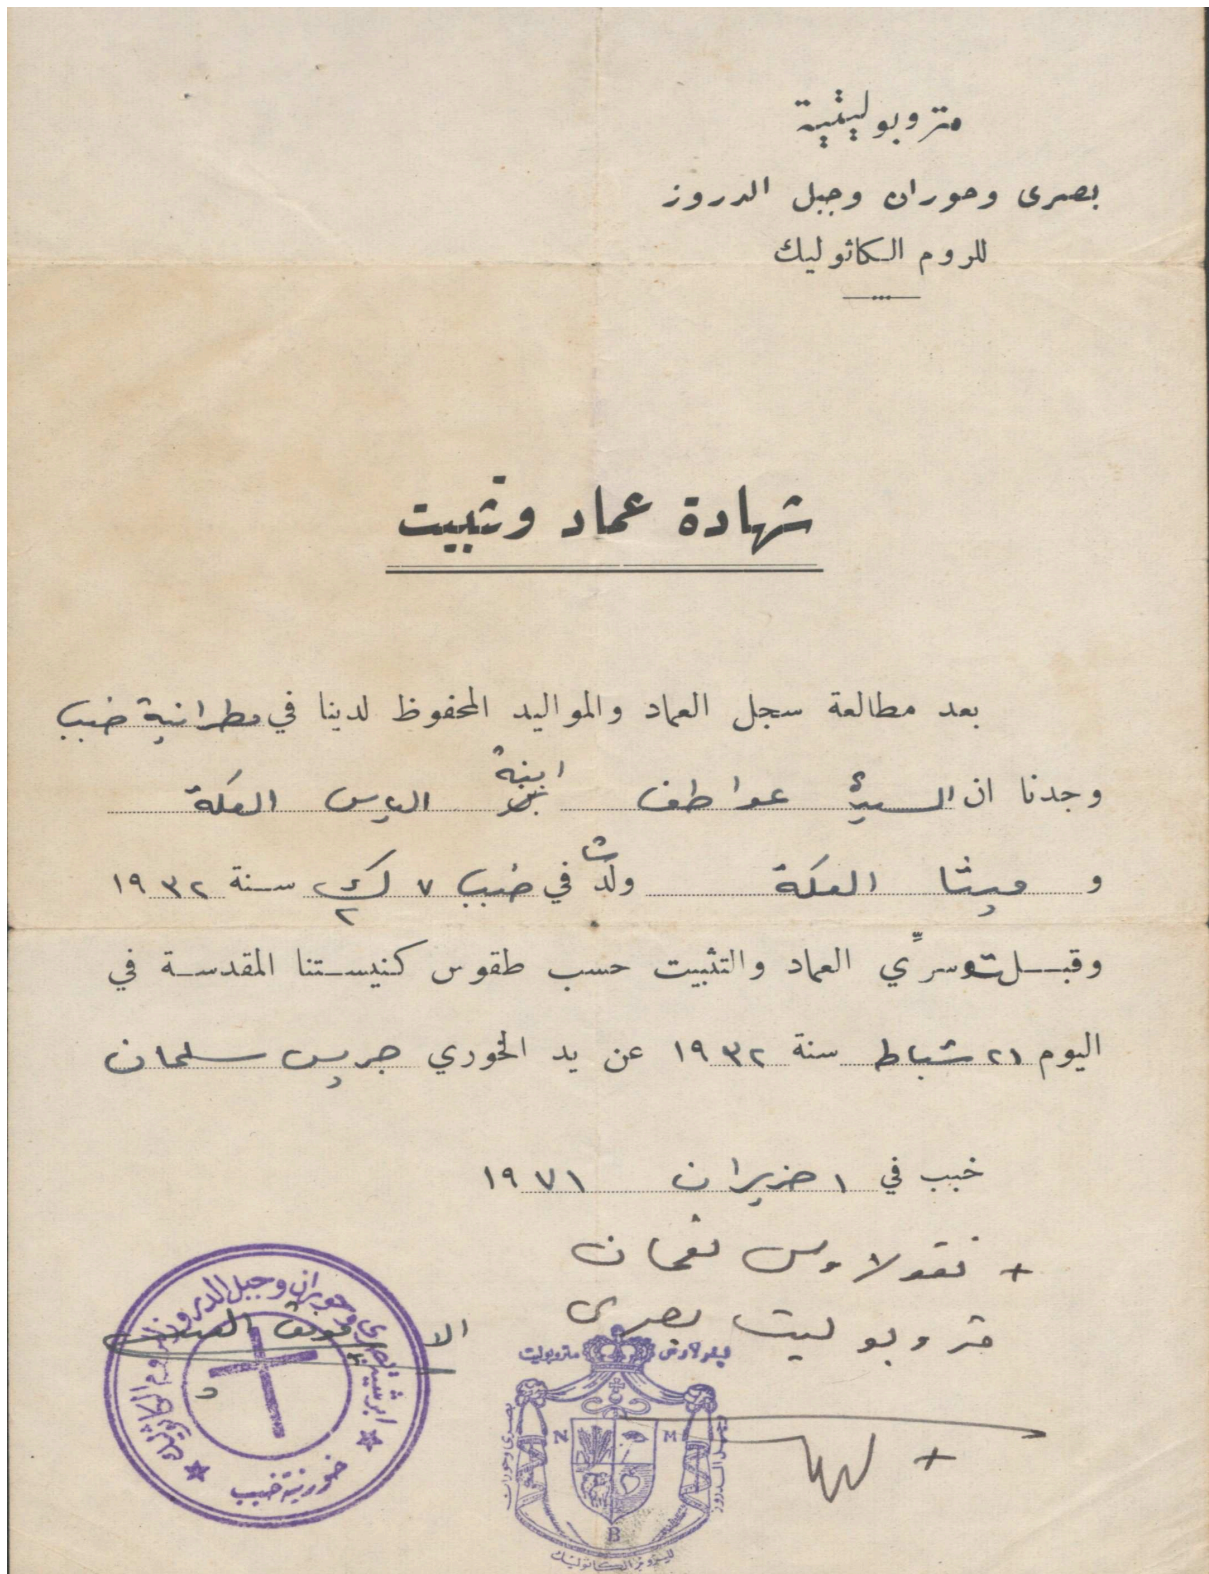 متروبوليتية
بصرى وحوران وجبل الدروز
للروم الكاثوليك
شهادة عماد وتثبيت
بعد مطالعة سجل العماد والمواليد المحفوظ لدينا في مطرانية خبب
وجدنا ان السيدة عواطف ابنة الياس العكة
و ميثا العكة ولدت في خبب ٧ ك٢ سنة ١٩٣٢
وقبلت سرِّي العماد والتثبيت حسب طقوس كنيستنا المقدسة في
اليوم ٢١ شباط سنة ١٩٣٢ عن يد الخوري جريس سلمان
خبب في ١ حزيران ١٩٧١
+ نقولاوس نعمان
متروبوليت بصرى
+
ابرشية بصرى وحوران وجبل الدروز للروم الكاثوليك
خورنية خبب
نيقولاوس متروبوليت
بصرى وحوران
وجبل الدروز
N M
B
للروم الكاثوليك